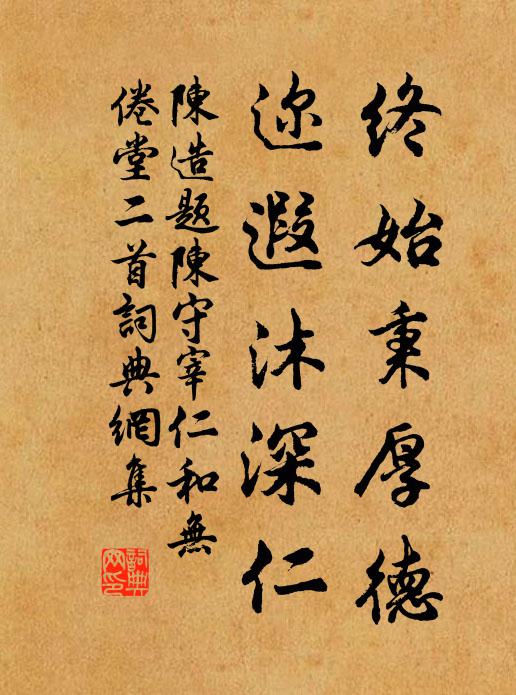 終始秉厚德
迩遐沐深仁
陳造題陳守宰仁和無
倦堂二首詞典網集
詞典網印